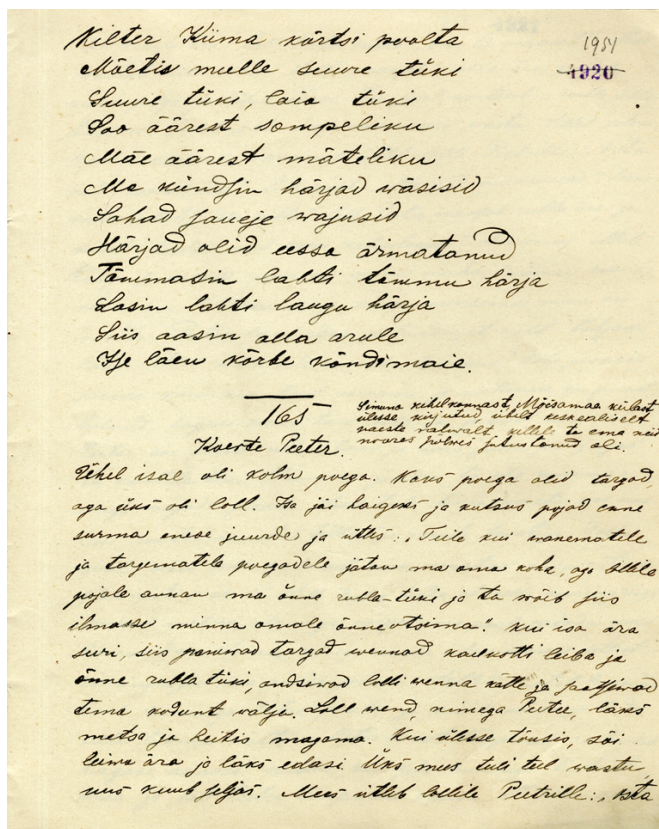 Kilter Kiima kõrtsi poolta
Mõetis mulle suure tüki
Suure tüki, laia tüki
Soo äärest sompeliku
Mäe äärest mäteliku
Ma kündsin härjad wäsisid
Sahad saueje wajusid
Härjad olid eessa ärmatanud
Tõmmasin lahti tõmmu härja
Lasin lahti laugu härja
Siis aasin alla arule
Ise läen kõrbe kõndimaie.
1951
4920
165
Simuna kihelkonnast, Mõisamaa külast
ülesse kirjutud ühelt keskealiselt
naeste rahwalt, kellele ta ema neid
noores põlwes jutustanud oli.
Koerte Peeter.
Ühel isal oli kolm poega. Kaks poega olid targad,
aga üks oli loll. Isa jäi haigeks ja kutsus pojad enne
surma enese juurde ja ütles: „Teile kui wanematele
ja targematele poegadele jätan ma oma koha, aga lollile
pojale annan ma õnne rubla-tüki ja ta wõib siis
ilmasse minna omale õnne otsima". Kui isa ära
suri, siis paniwad targad wennad kaelkotti leiba ja
õnne rubla tüki, andsiwad lolli wenna kätte ja saatsiwad
tema kodunt wälja. Loll wend, nimega Peeter, läks
metsa ja heitis magama. Kui ülesse tõusis, sõi
leiwa ära ja läks edasi. Üks mees tuli teel wastu,
uus kuub seljas. Mees ütleb lollile Peetrille: „Osta